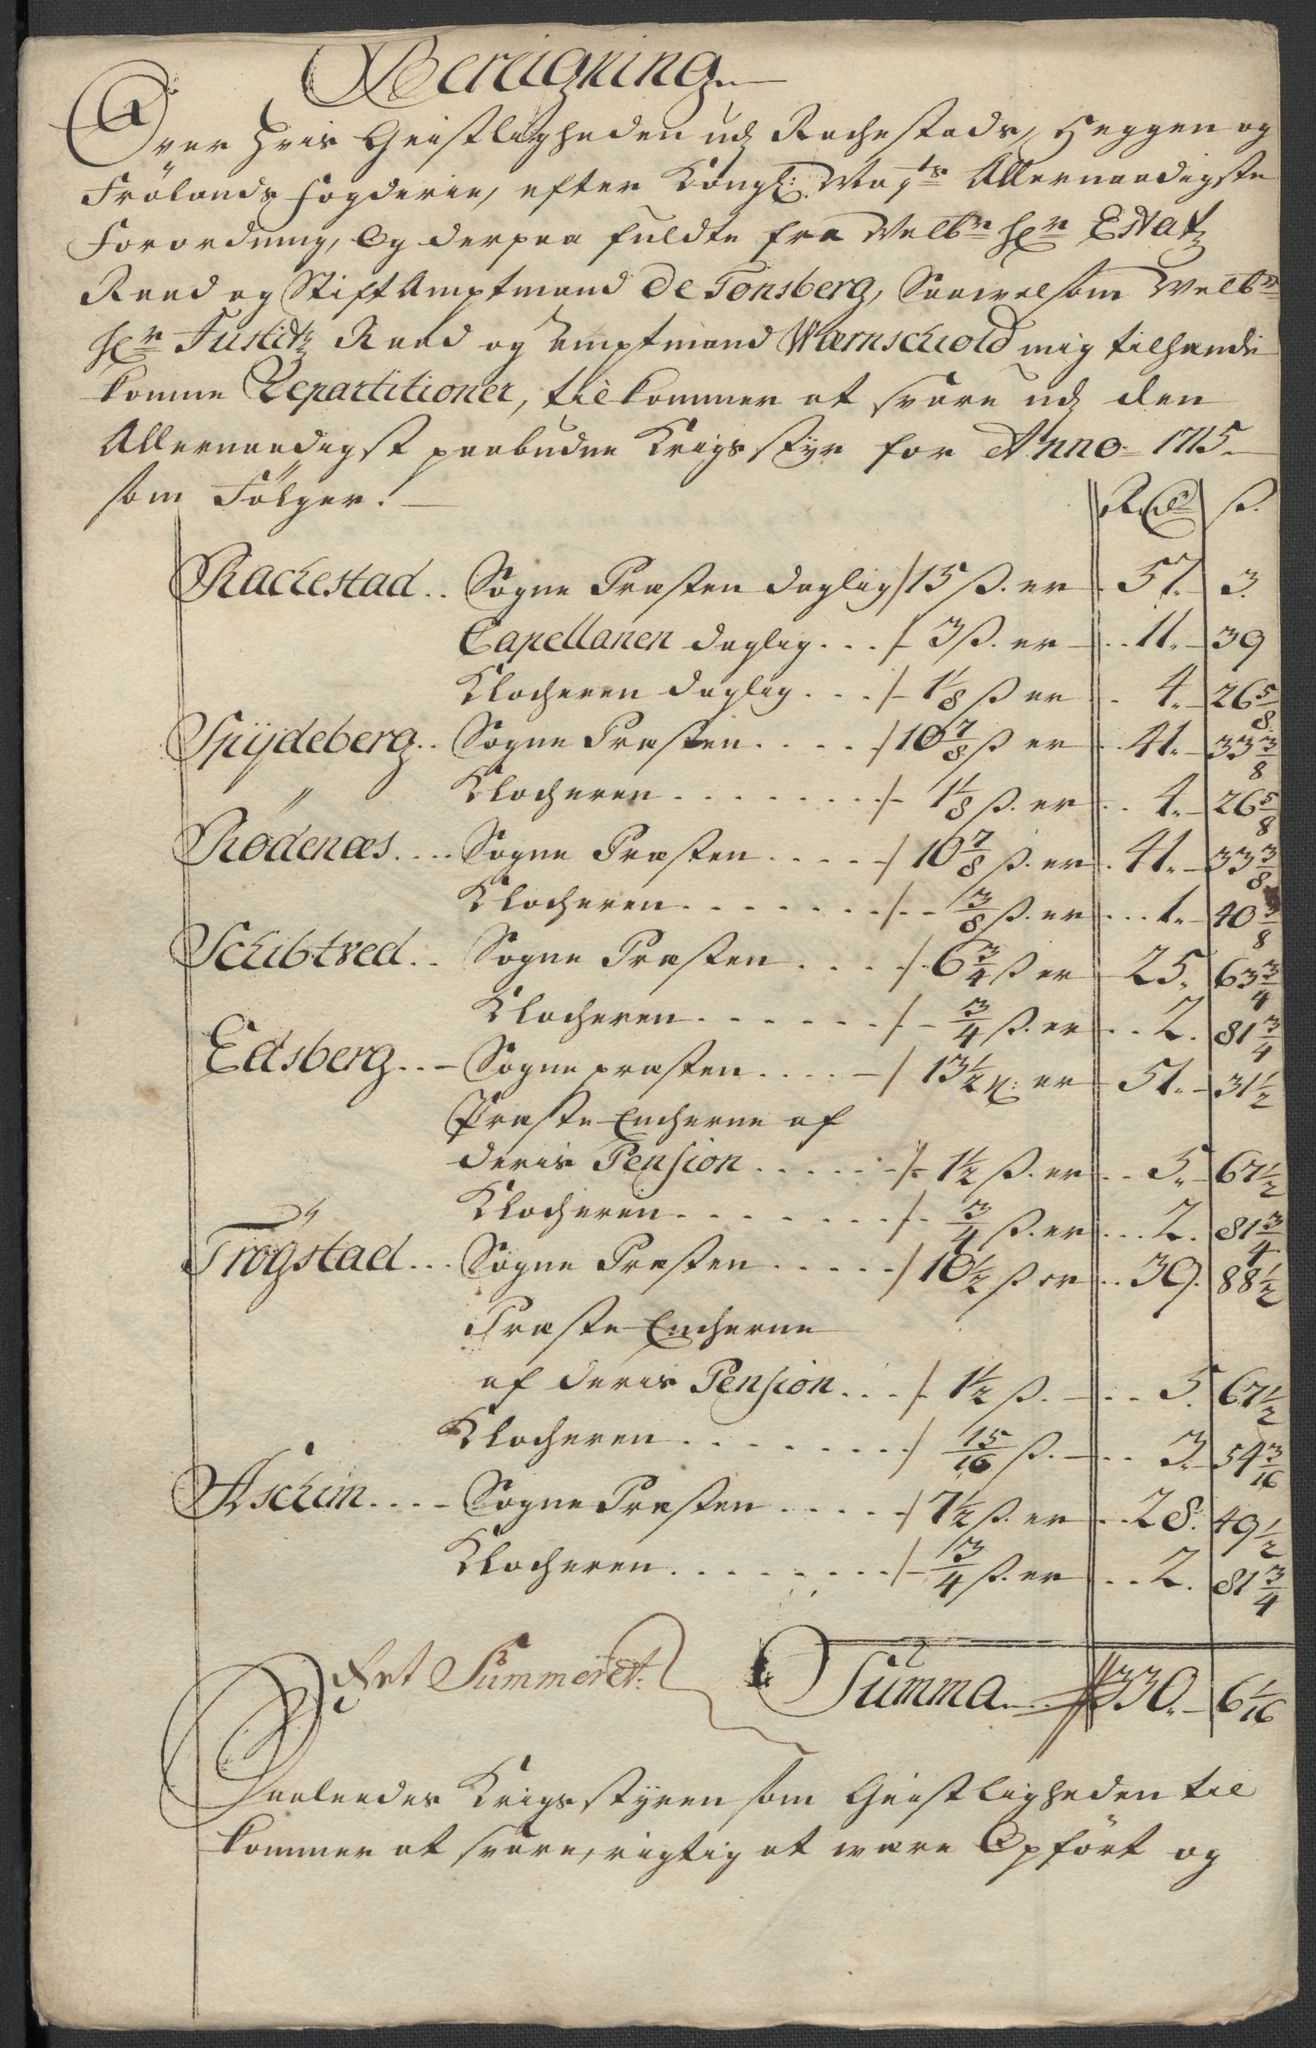 Beregning
Over hvis Geistligheden udj Rachestads, Heggen og
Frölands fogderie, efter Kongl: May:ts Allernaadigste
Forordning, Og derpaa fuldte fra Welb:ne H:r Etatz
Raad og StiftAmptmand De Tonsberg, Saavelsom Welb:ne
H:r Justitz Raad og Amptmand Wernschiold mig tilhænde
komne Repartitioner, tilkommer at svare udj den
Allernaadigst paabudne Krigs styr for Anno 1715.
som Fölger.
Rdr ß.
Rachestad.. Sogne Præsten daglig /15 ß. er 57. 3.
Capellanen daglig... /- 3 ß. er -..11.- 39
Klocheren daglig... /- 1 1/8 ß er .. 4.- 26 5/8
Spÿdeberg.. Sogne Præsten..... /10 7/8 ß er ..41.- 33 3/8
Klocheren....... /- 1 1/8 ß. er .. 4.- 26 5/8
Rödenæs.... Sogne Præsten..... /10 7/8 ß. er . 41.- 33 3/8
Klocheren....... /-- 3/8 ß. er ...1.- 40 3/8
Schibtved.. Sogne Præsten.... /- 6 3/4 ß er - 25. 63 3/4
Klocheren...... /- 3/4 ß. er .. 2. 81 3/4
Edsberg..- Sogne præsten.... -/ 13 1/2 ß: er - 51.- 31 1/2
Præste Encherne af
deris Pension...... /- 1 1/2 ß. er ... 5.- 67 1/2
Klocheren....... /- 3/4 ß. er ... 2. 81 3/4
Trögstad... Sogne Præsten..... / 10 1/2 ß er .. 39. 88 1/2
Præste Encherne
af deris Pension... /- 1 1/2 ß. -... 5. 67 1/2
Klocheren....... / 15/16 ß. -... 3.- 54 3/16
Aschim....- Sogne Præsten..... / 7 1/2 ß. er ..28. 49 1/2
Klocheren........ /- 3/4 ß. er ... 2. 81 3/4
Ret Summeret. Summa.... 330.- 6 1/16
Saaleedes Krigs styren som Geistligheden til
kommer at svare, rigtig at være Opfört og